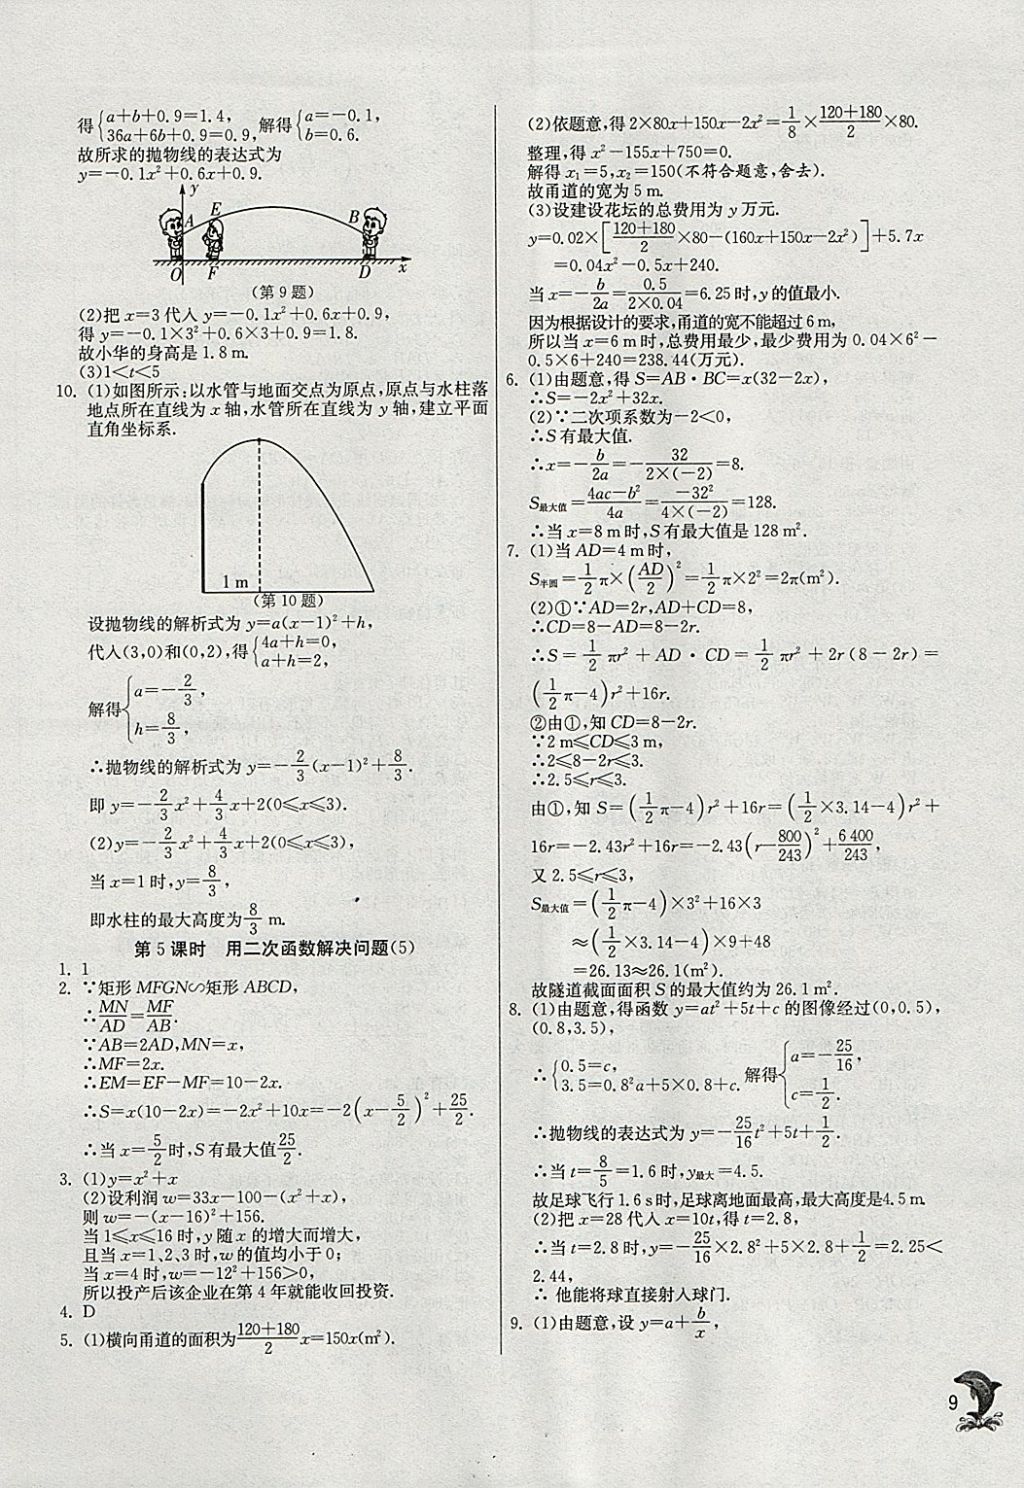 得{a+b+0.9=1.4, 36a+6b+0.9=0.9, 解得{a=-0.1, b=0.6.
故所求的抛物线的表达式为
y=-0.1x²+0.6x+0.9.
y
A E B
O F D x
(第9题)
(2)把x=3代入y=-0.1x²+0.6x+0.9,
得y=-0.1×3²+0.6×3+0.9=1.8.
故小华的身高是1.8 m.
(3)1<t<5
10. (1)如图所示:以水管与地面交点为原点,原点与水柱落
地点所在直线为x轴,水管所在直线为y轴,建立平面
直角坐标系.
1 m
(第10题)
设抛物线的解析式为y=a(x-1)²+h,
代入(3,0)和(0,2),得{4a+h=0, a+h=2,
解得{a=-2/3, h=8/3,
∴抛物线的解析式为y=-2/3(x-1)²+8/3.
即y=-2/3x²+4/3x+2(0≤x≤3).
(2)y=-2/3x²+4/3x+2(0≤x≤3),
当x=1时,y=8/3,
即水柱的最大高度为8/3 m.
第5课时 用二次函数解决问题(5)
1. 1
2. ∵矩形MFGN∽矩形ABCD,
∴MN/AD=MF/AB.
∵AB=2AD,MN=x,
∴MF=2x.
∴EM=EF-MF=10-2x.
∴S=x(10-2x)=-2x²+10x=-2(x-5/2)²+25/2.
∴当x=5/2时,S有最大值25/2.
3. (1)y=x²+x
(2)设利润w=33x-100-(x²+x),
则w=-(x-16)²+156.
当1≤x≤16时,y随x的增大而增大,
且当x=1、2、3时,w的值均小于0;
当x=4时,w=-12²+156>0,
所以投产后该企业在第4年就能收回投资.
4. D
5. (1)横向甬道的面积为(120+180)/2 x=150x(m²).
(2)依题意,得2×80x+150x-2x²=1/8×(120+180)/2×80.
整理,得x²-155x+750=0.
解得x₁=5,x₂=150(不符合题意,舍去).
故甬道的宽为5 m.
(3)设建设花坛的总费用为y万元.
y=0.02×[(120+180)/2×80-(160x+150x-2x²)]+5.7x
=0.04x²-0.5x+240.
当x=-b/2a=0.5/(2×0.04)=6.25时,y的值最小.
因为根据设计的要求,甬道的宽不能超过6 m,
所以当x=6 m时,总费用最少,最少费用为0.04×6²-
0.5×6+240=238.44(万元).
6. (1)由题意,得S=AB·BC=x(32-2x),
∴S=-2x²+32x.
(2)∵二次项系数为-2<0,
∴S有最大值.
∴x=-b/2a=-32/(2×(-2))=8.
S最大值=(4ac-b²)/4a=-32²/(4×(-2))=128.
∴当x=8 m时,S有最大值是128 m².
7. (1)当AD=4 m时,
S半圆=1/2π×(AD/2)²=1/2π×2²=2π(m²).
(2)①∵AD=2r,AD+CD=8,
∴CD=8-AD=8-2r.
∴S=1/2πr²+AD·CD=1/2πr²+2r(8-2r)=
(1/2π-4)r²+16r.
②由①,知CD=8-2r.
∵2 m≤CD≤3 m,
∴2≤8-2r≤3.
∴2.5≤r≤3.
由①,知S=(1/2π-4)r²+16r=(1/2×3.14-4)r²+
16r=-2.43r²+16r=-2.43(r-800/243)²+6 400/243,
又2.5≤r≤3,
S最大值=(1/2π-4)×3²+16×3
≈(1/2×3.14-4)×9+48
=26.13≈26.1(m²).
故隧道截面面积S的最大值约为26.1 m².
8. (1)由题意,得函数y=at²+5t+c的图像经过(0,0.5),
(0.8,3.5),
∴{0.5=c, 3.5=0.8²a+5×0.8+c. 解得{a=-25/16, c=1/2.
∴抛物线的表达式为y=-25/16t²+5t+1/2.
∴当t=8/5=1.6时,y最大=4.5.
故足球飞行1.6 s时,足球离地面最高,最大高度是4.5 m.
(2)把x=28代入x=10t,得t=2.8,
∴当t=2.8时,y=-25/16×2.8²+5×2.8+1/2=2.25<
2.44,
∴他能将球直接射入球门.
9. (1)由题意,设y=a+b/x,
9